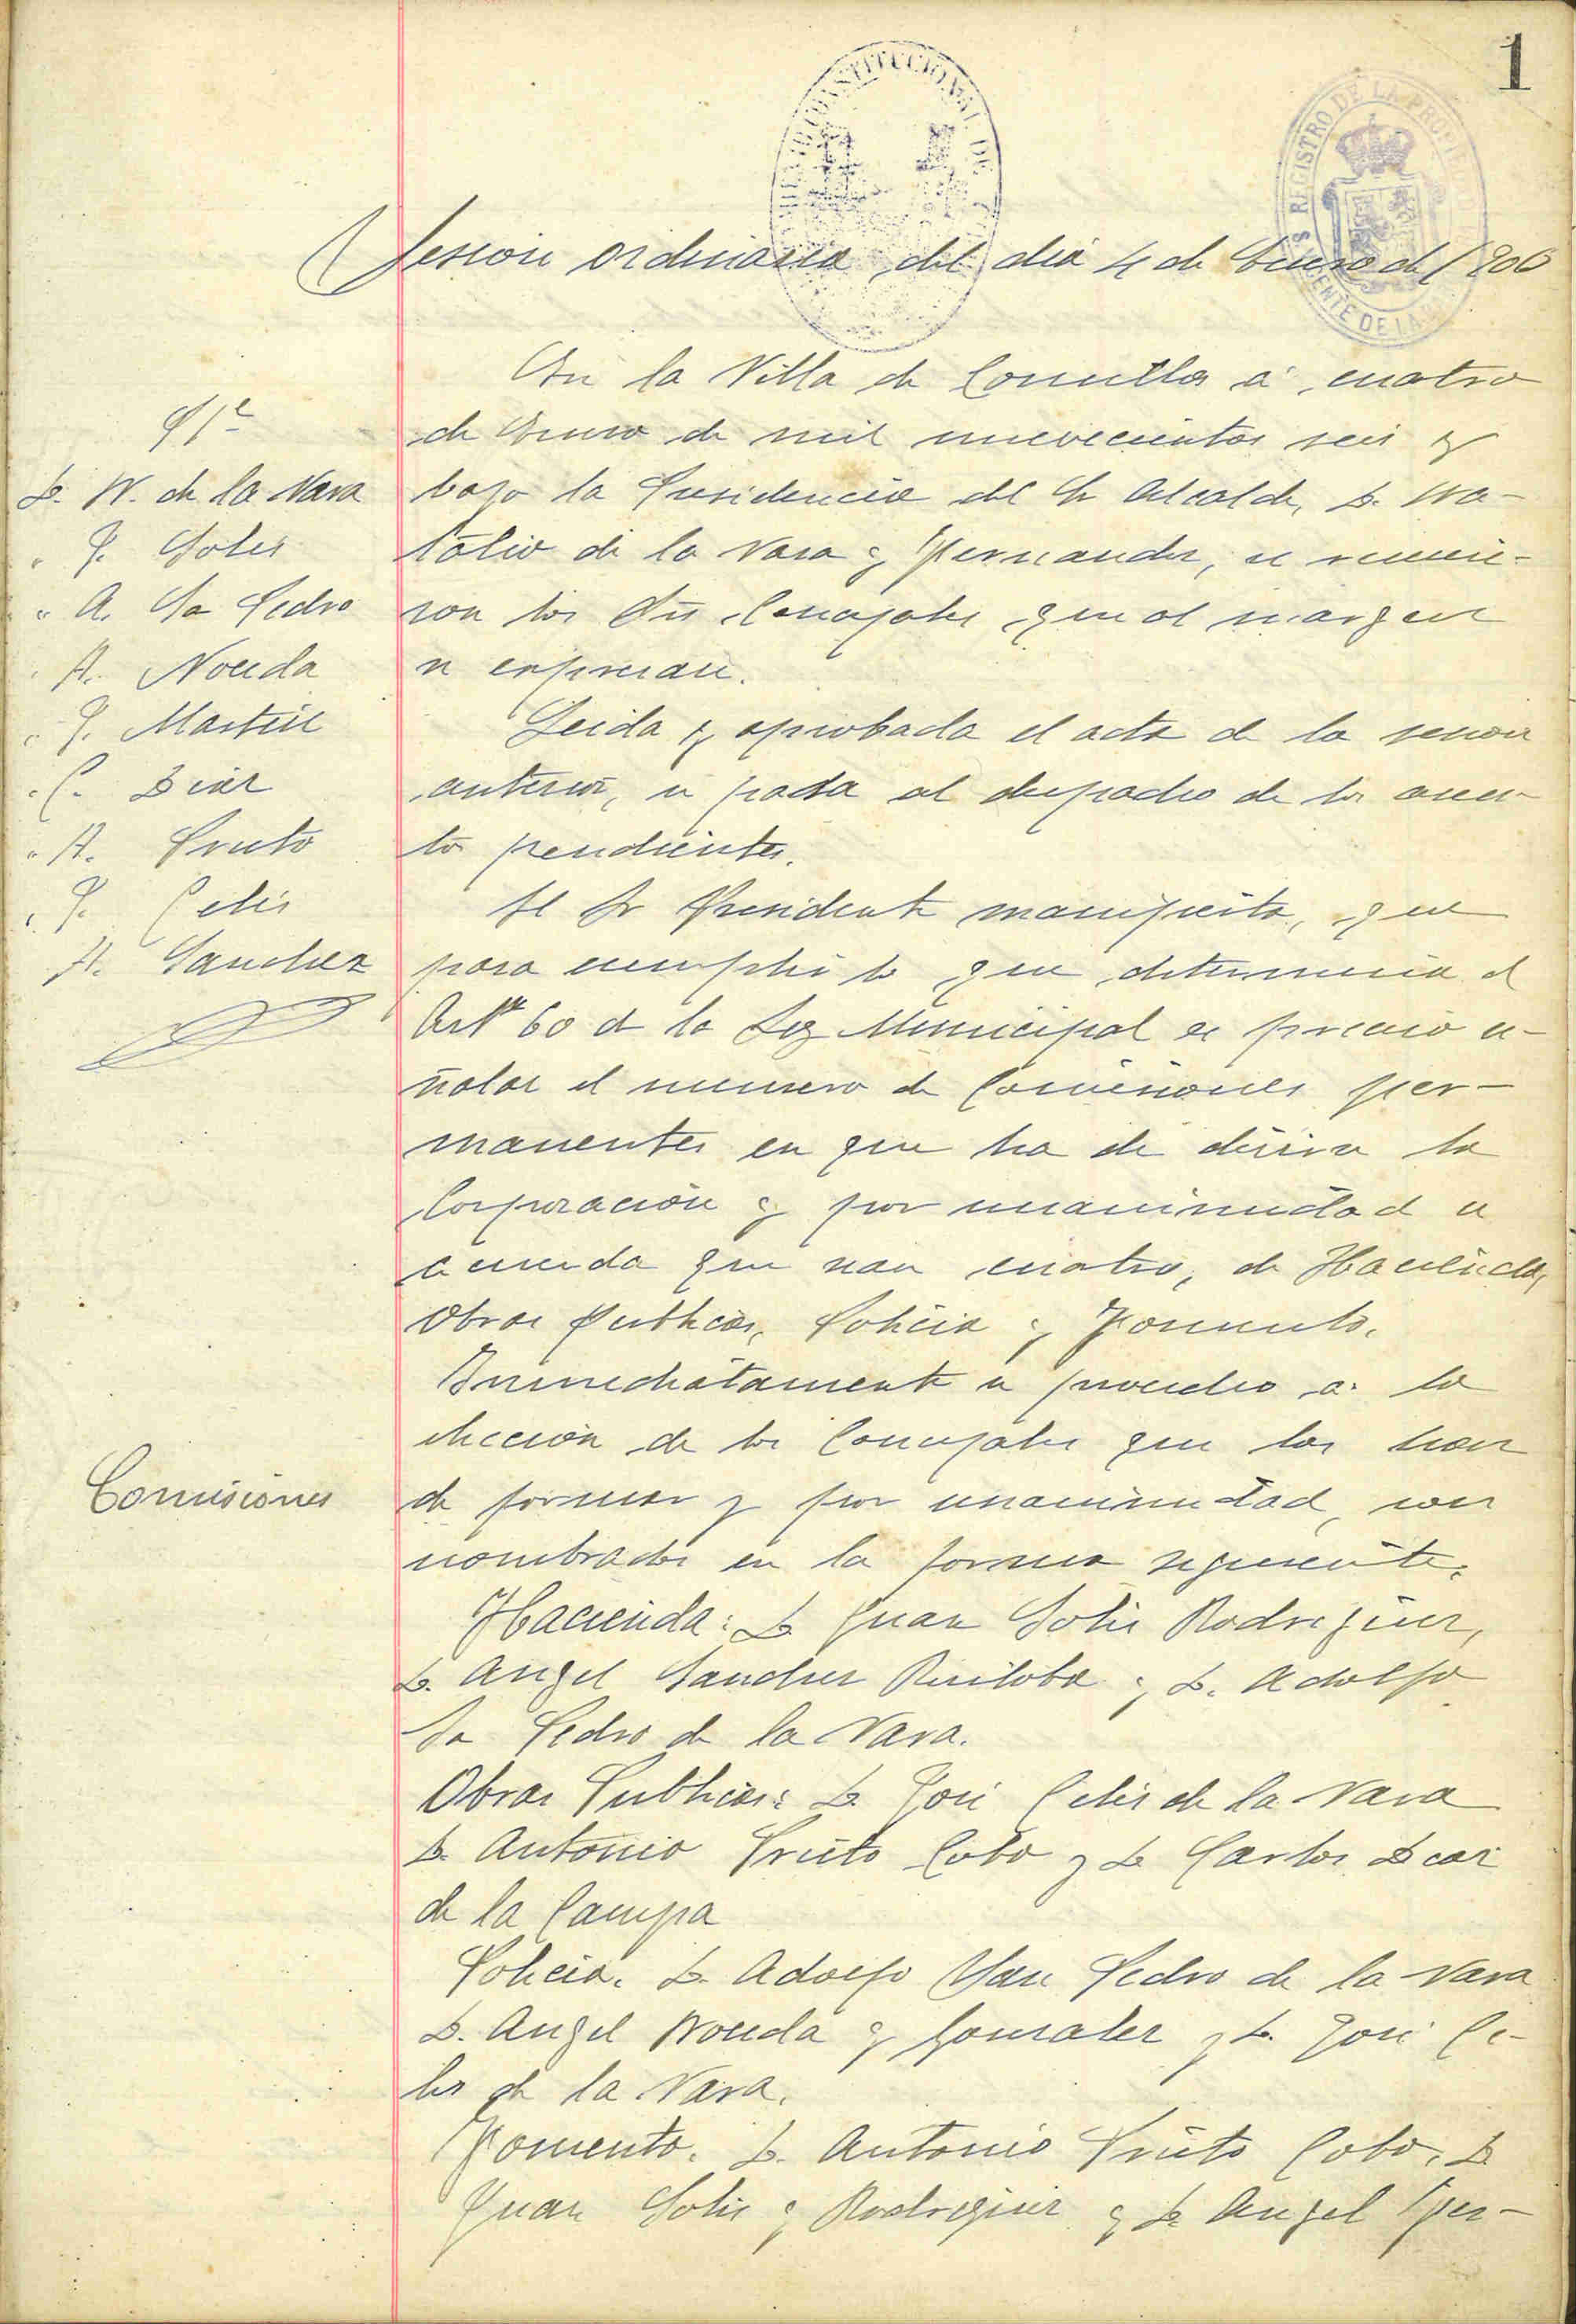 1
CONSTITUCIONAL DE
REGISTRO DE LA PROPIEDAD
S. VICENTE DE LA
Sesion ordinaria del dia 4 de Enero de 1906
En la Villa de Comillas a cuatro
de Enero de mil nuevecientos seis y
bajo la Presidencia del Sr Alcalde, D. Na-
talio de la Vara y Fernandez, se reunie-
ron los Sres Concejales que al margen
se expresan.
Sres
D. N. de la Vara
" J. Solis
" A. Sn Pedro
" A. Noceda
" J. Martin
" C. Diaz
" A. Prieto
" J. Celis
A. Sanchez
Leida y aprobada el acta de la sesion
anterior, se pasa al despacho de los asun-
tos pendientes.
El Sr Presidente manifiesta, que
para cumplir lo que determina el
Artº 60 d la Ley Municipal es preciso se-
ñalar el numero de Comisiones per-
manentes en que ha de divirse la
Corporación y por unanimidad se
acuerda que sean cuatro, de Hacienda,
Obras Publicas, Policia y Fomento.
Inmediatamente se procedio a la
eleccion de los Concejales que las han
Comisiones
de formar y por unanimidad, son
nombrados en la forma siguiente.
Hacienda: D. Juan Solis Rodriguez,
D. Angel Sanchez Ruiloba y D. Adolfo
Sn Pedro de la Vara.
Obras Publicas: D. José Celis de la Vara
D. Antonio Prieto Cobo y D. Carlos Diaz
de la Campa
Policia. D. Adolfo San Pedro de la Vara
D. Angel Noceda y Gonzalez y D. José Ce-
lis de la Vara.
Fomento. D. Antonio Prieto Cobo, D.
Juan Solis y Rodriguez y D. Angel Fer-